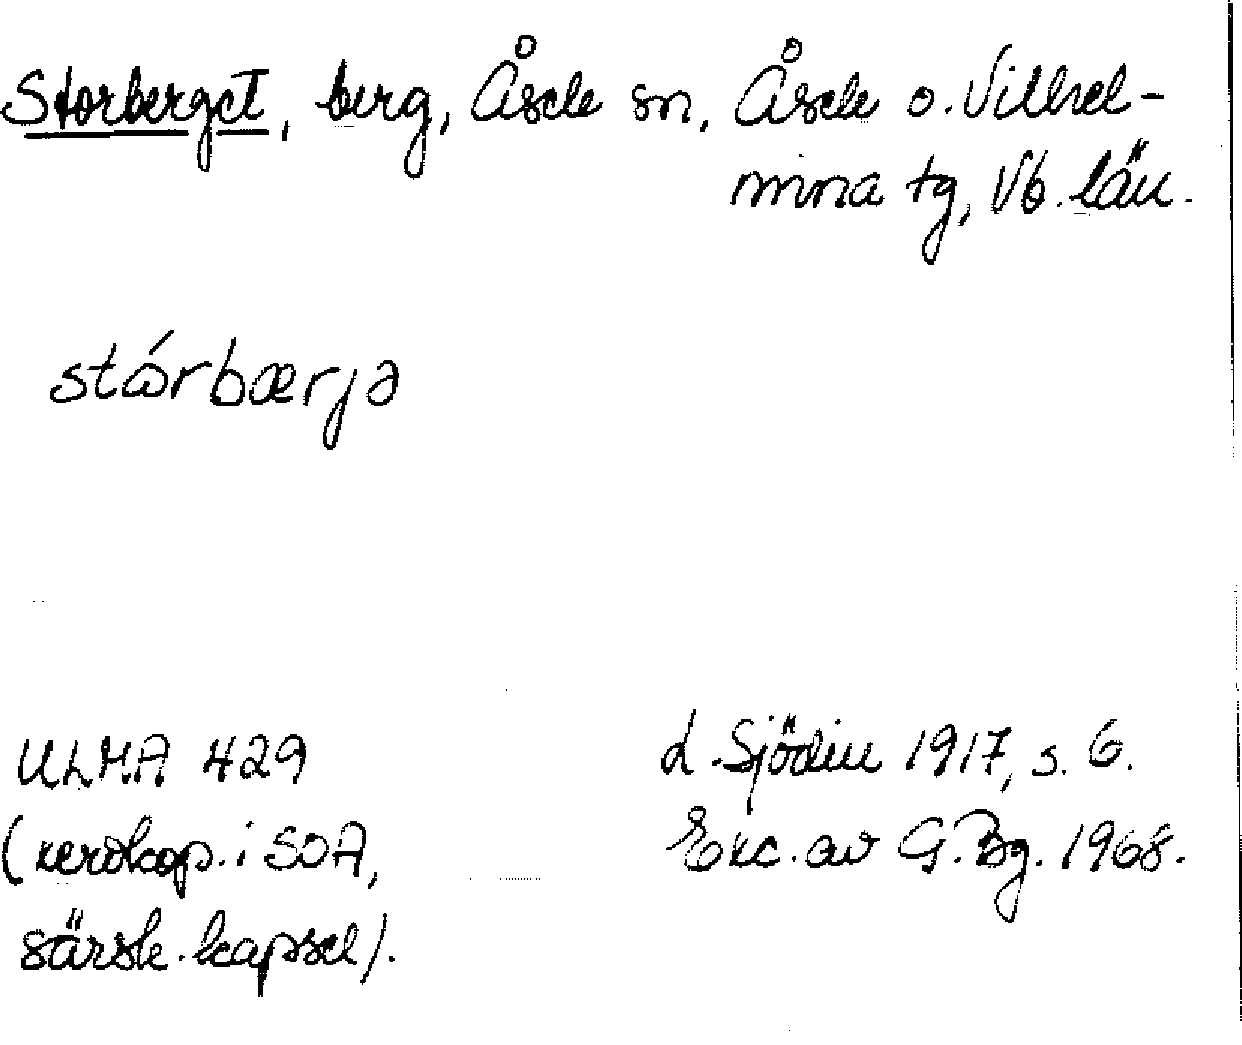 Storberget, berg, Åsele sn, Åsele o. Vilhel-
mina tg, Vb. län.
stɷ́rbærjə
ULMA 429
(xerokop. i SOA,
särsk. kapsel).
L. Sjödin 1917, s. 6.
Exc. av G. Bg. 1968.